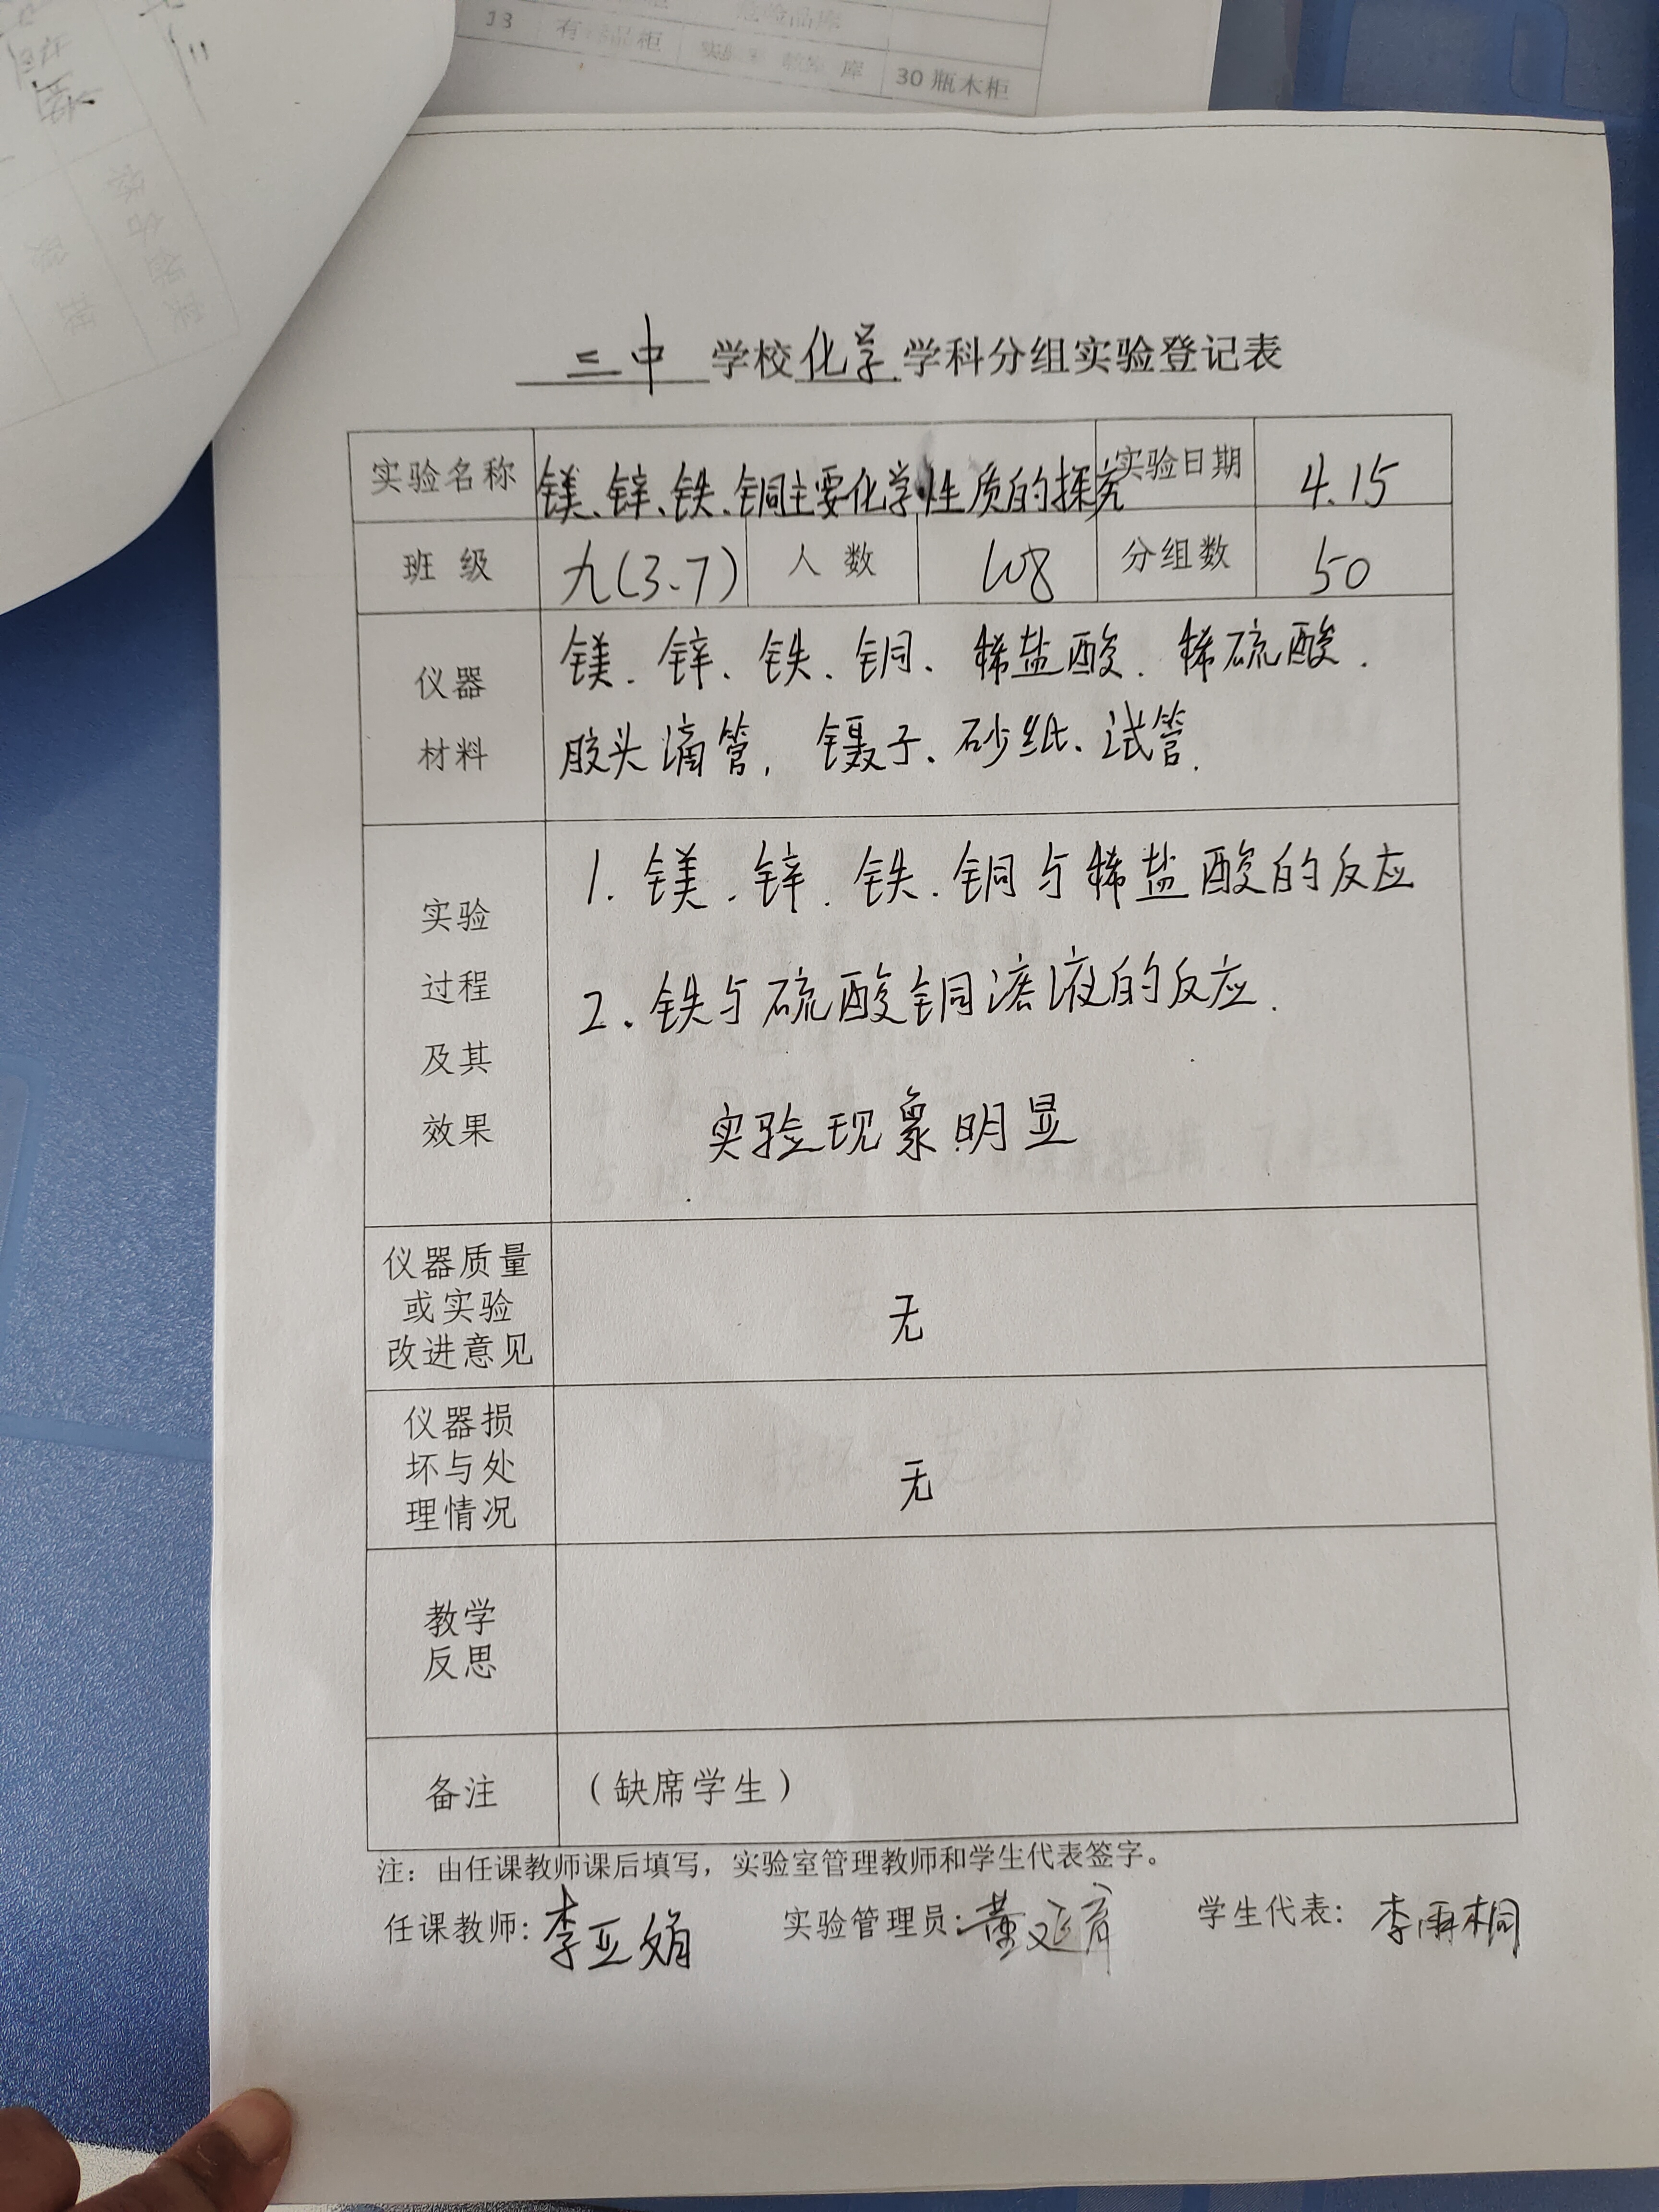 13 有 品柜 库 30瓶木柜
二中 学校 化学 学科分组实验登记表
实验名称 镁、锌、铁、铜主要化学性质的探究 实验日期 4.15
班 级 九(3、7) 人 数 108 分组数 50
仪器
材料
镁、锌、铁、铜、稀盐酸、稀硫酸、
胶头滴管，镊子、砂纸、试管.
实验
过程
及其
效果
1. 镁、锌、铁、铜与稀盐酸的反应
2. 铁与硫酸铜溶液的反应.
实验现象明显
仪器质量
或实验
改进意见
无
仪器损
坏与处
理情况
无
教学
反思
备注 （缺席学生）
注：由任课教师课后填写，实验室管理教师和学生代表签字。
任课教师: 李亚娟 实验管理员: 黄延育 学生代表: 李雨桐